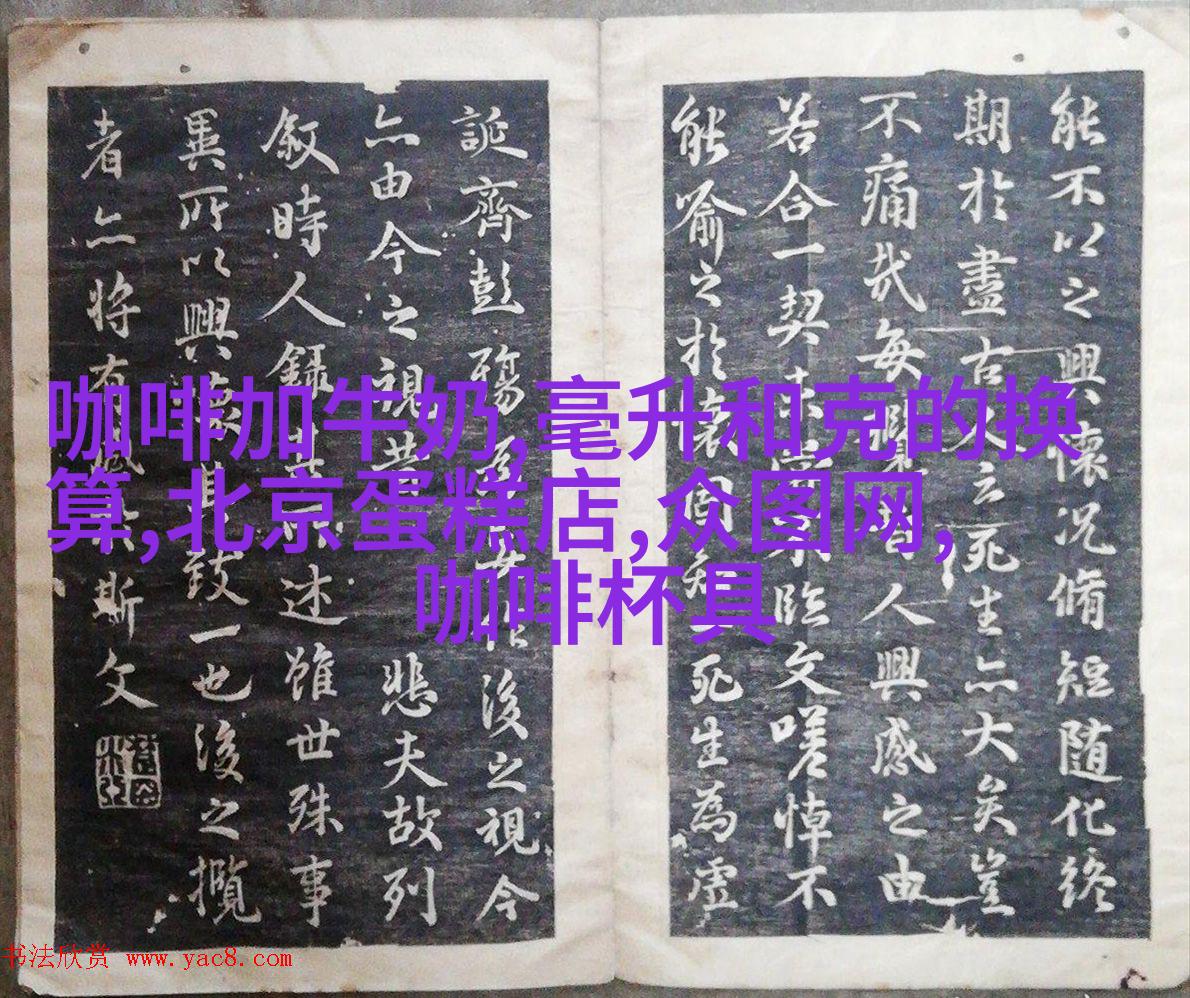 能不以之興懷況脩短随化終
期於盡古人云死生亦大矣豈
不痛哉每攬昔人興感之由
若合一契未嘗不臨文嗟悼不
能喻之於懷固知死生為虛
誕齊彭殤為妄作後之視今
亦由今之視昔悲夫故列
敘時人錄其所述雖世殊事
異所以興懷其致一也後之攬
者亦將有感於斯文
咖啡加牛奶,毫升和克的换
算,北京蛋糕店,众图网,
咖啡杯具
书法欣赏 www.yac8.com